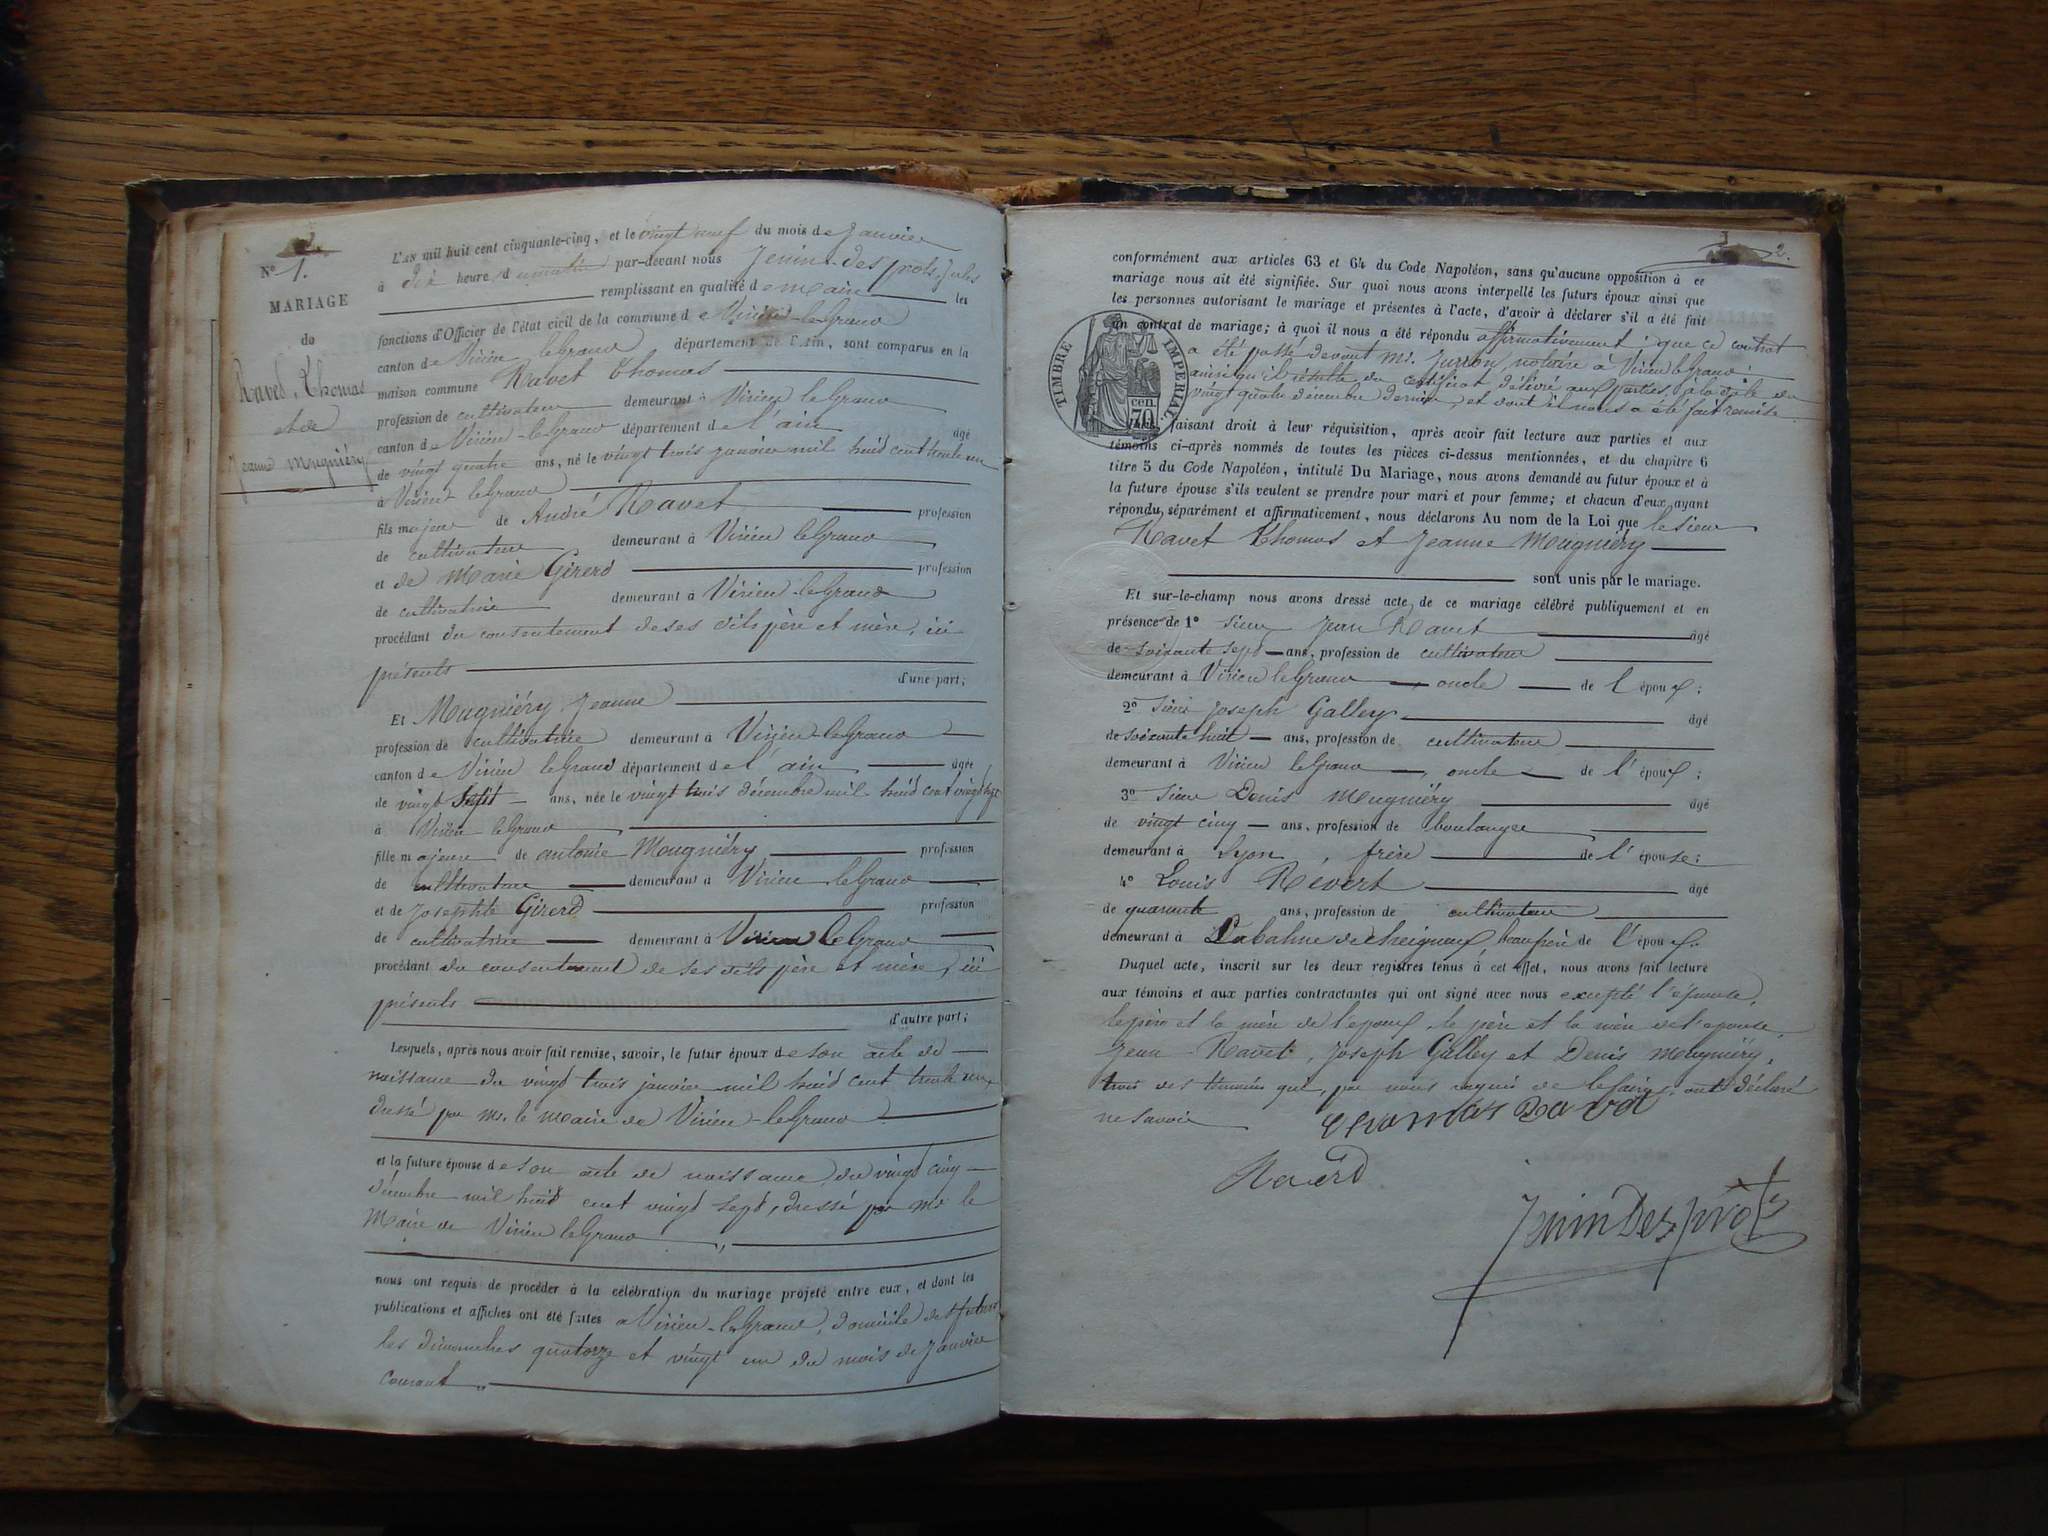 N° 1.
MARIAGE
de
Ravet, Thomas
et de
Jeanne Mugniéry
L'AN mil huit cent cinquante-cinq, et le vingt neuf du mois de Janvier
à dix heure du matin par-devant nous Jenin-des prots, Jules
remplissant en qualité de maire les
fonctions d'Officier de l'état civil de la commune de Virieu-le-Grand
canton de Virieu le Grand département de l'Ain, sont comparus en la
maison commune Ravet Thomas
profession de cultivateur demeurant à Virieu le Grand
canton de Virieu-le-Grand département de l'ain âgé
de vingt quatre ans, né le vingt trois janvier mil huit cent trente un
à Virieu-le Grand
fils majeur de André Ravet profession
de cultivateur demeurant à Virieu le Grand
et de Marie Girerd profession
de cultivatrice demeurant à Virieu-le Grand
procédant du consentement de ses dits père et mère, ici
présents
d'une part;
Et Mugniéry Jeanne
profession de cultivatrice demeurant à Virieu-le Grand
canton de Virieu le Grand département de l'ain âgée
de vingt sept ans, née le vingt trois décembre mil huit cent vingt sept
à Virieu-le Grand
fille majeure de antoine Mugniéry profession
de cultivateur demeurant à Virieu le Grand
et de Josephte Girerd profession
de cultivatrice demeurant à Virieu le Grand
procédant du consentement de ses dits père et mère, ici
présents
d'autre part;
Lesquels, après nous avoir fait remise, savoir, le futur époux de son acte de
naissance du vingt trois janvier mil huit cent trente un,
dressé par Mr. le Maire de Virieu-le Grand
et la future épouse de son acte de naissance du vingt cinq
décembre mil huit cent vingt sept, dressé par Mr le
Maire de Virieu le Grand
nous ont requis de procéder à la célébration du mariage projeté entre eux, et dont les
publications et affiches ont été faites a Virieu-le Grand, domicile des futurs
les dimanches quatorze et vingt un du mois de Janvier
courant
2.
conformément aux articles 63 et 64 du Code Napoléon, sans qu'aucune opposition à ce
mariage nous ait été signifiée. Sur quoi nous avons interpellé les futurs époux ainsi que
les personnes autorisant le mariage et présentes à l'acte, d'avoir à déclarer s'il a été fait
un contrat de mariage; à quoi il nous a été répondu affirmativement; que ce contrat
a été passé devant Mr. Jurron, notaire à Virieu le Grand;
ainsi qu'il résulte du certificat délivré aux parties, à la date du
vingt quatre décembre dernier, et dont il nous a été fait remise.
TIMBRE IMPERIAL
70 cen
faisant droit à leur réquisition, après avoir fait lecture aux parties et aux
témoins ci-après nommés de toutes les pièces ci-dessus mentionnées, et du chapitre 6
titre 5 du Code Napoléon, intitulé Du Mariage, nous avons demandé au futur époux et à
la future épouse s'ils veulent se prendre pour mari et pour femme; et chacun d'eux ayant
répondu séparément et affirmativement, nous déclarons Au nom de la Loi que le sieur
Ravet Thomas et Jeanne Mugniéry
sont unis par le mariage.
Et sur-le-champ nous avons dressé acte de ce mariage célébré publiquement et en
présence de 1° Sieur Jean Ravet âgé
de soixante sept ans, profession de cultivateur
demeurant à Virieu le Grand, oncle de l'époux;
2° Sieur Joseph Galley âgé
de soixante huit ans, profession de cultivateur
demeurant à Virieu le Grand, oncle de l'époux;
3° Sieur Denis Mugniéry âgé
de vingt cinq ans, profession de boulanger
demeurant à Lyon, frère de l'épouse;
4° Louis Revert âgé
de quarante ans, profession de cultivateur
demeurant à Labalme de cheigneux, beau frère de l'époux.
Duquel acte, inscrit sur les deux registres tenus à cet effet, nous avons fait lecture
aux témoins et aux parties contractantes qui ont signé avec nous excepté l'épouse,
le père et la mère de l'époux, le père et la mère de l'épouse,
Jean Ravet, Joseph Galley et Denis Mugniéry,
trois des témoins qui, par nous requis de le faire, ont déclaré
ne savoir
thomas Ravet
Jenin Desprots